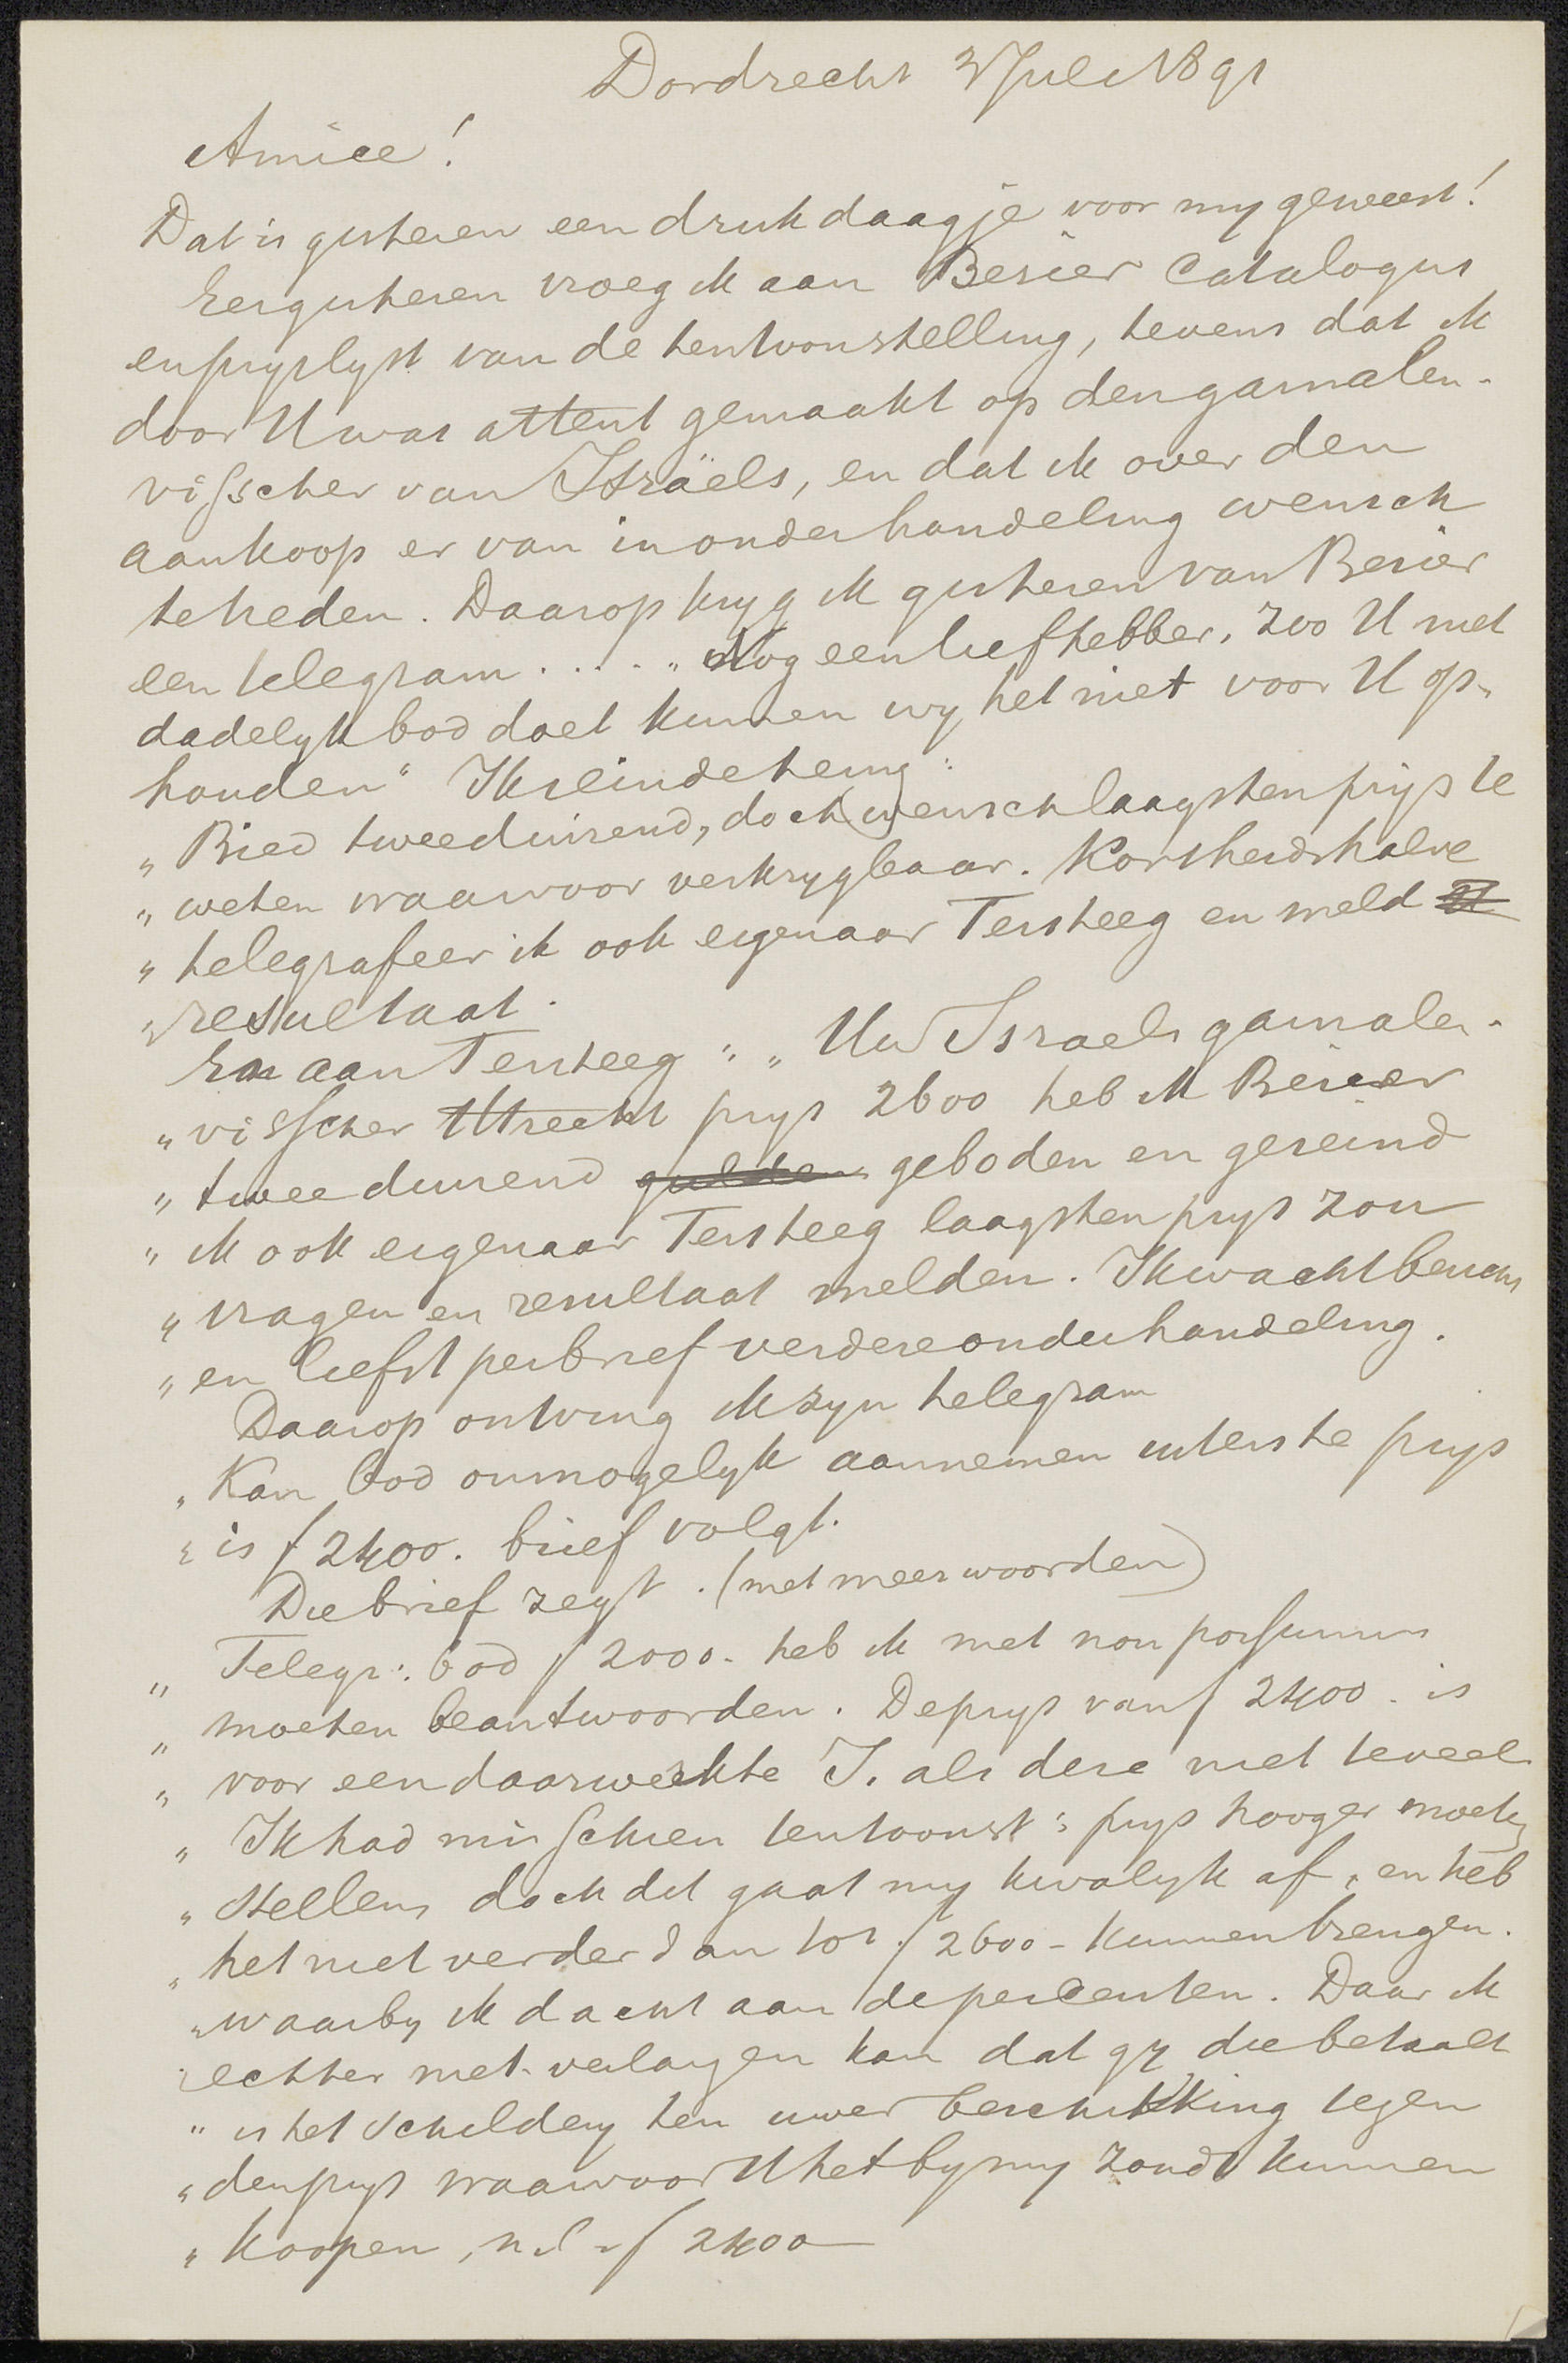 Dordrecht 3 Juli 1891
Amice!
Dat is gisteren een druk daagje voor my geweest!
Eergisteren vroeg ik aan Besier Catalogus
en pryslyst van de tentoonstelling, tevens dat ik
door U was attent gemaakt op den garnalen-
visscher van Israëls, en dat ik over den
aankoop er van in onderhandeling wensch
te treden. Daarop kryg ik gisteren van Besier
een telegram ..... „Nog een liefhebber, zoo U niet
dadelyk bod doet kunnen wy het niet voor U op-
houden" Ik seinde terug:
„Bied tweeduisend, doch wensch laagsten prijs te
„weten waarvoor verkrygbaar. Kortheidshalve
„telegrafeer ik ook eigenaar Tersteeg en meld
„resultaat.
En aan Tersteeg: „Uw Israels garnalen-
„visscher Utrecht prys 2600 heb ik Besier
„twee duisend gulden geboden en geseind
„ik ook eigenaar Tersteeg laagsten prys zou
„vragen en resultaat melden. Ik wacht
„en liefst per brief verdere onderhandeling.
Daarop ontving ik zyn telegram
„Kan bod onmogelyk aannemen uiterste prys
„is f 2400. brief volgt.
Die brief zegt. (met meer woorden)
„Telegr: bod f 2000. heb ik met non possumus
„moeten beantwoorden. De prys van f 2400. is
„voor een doorwerkte I. als dese niet te veel
„Ik had misschien tentoonst: prys hooger moeten
„stellen, doch dit gaat my kwalyk af, en heb
„het niet verder dan tot f 2600 - kunnen brengen.
„waarby ik dacht aan de percenten. Daar ik
„echter niet verlangen kan dat gy die betaalt
„is het schildery ten uwer beschikking tegen
„den prys waarvoor U het by my zoudt kunnen
„koopen, n.l. f 2400